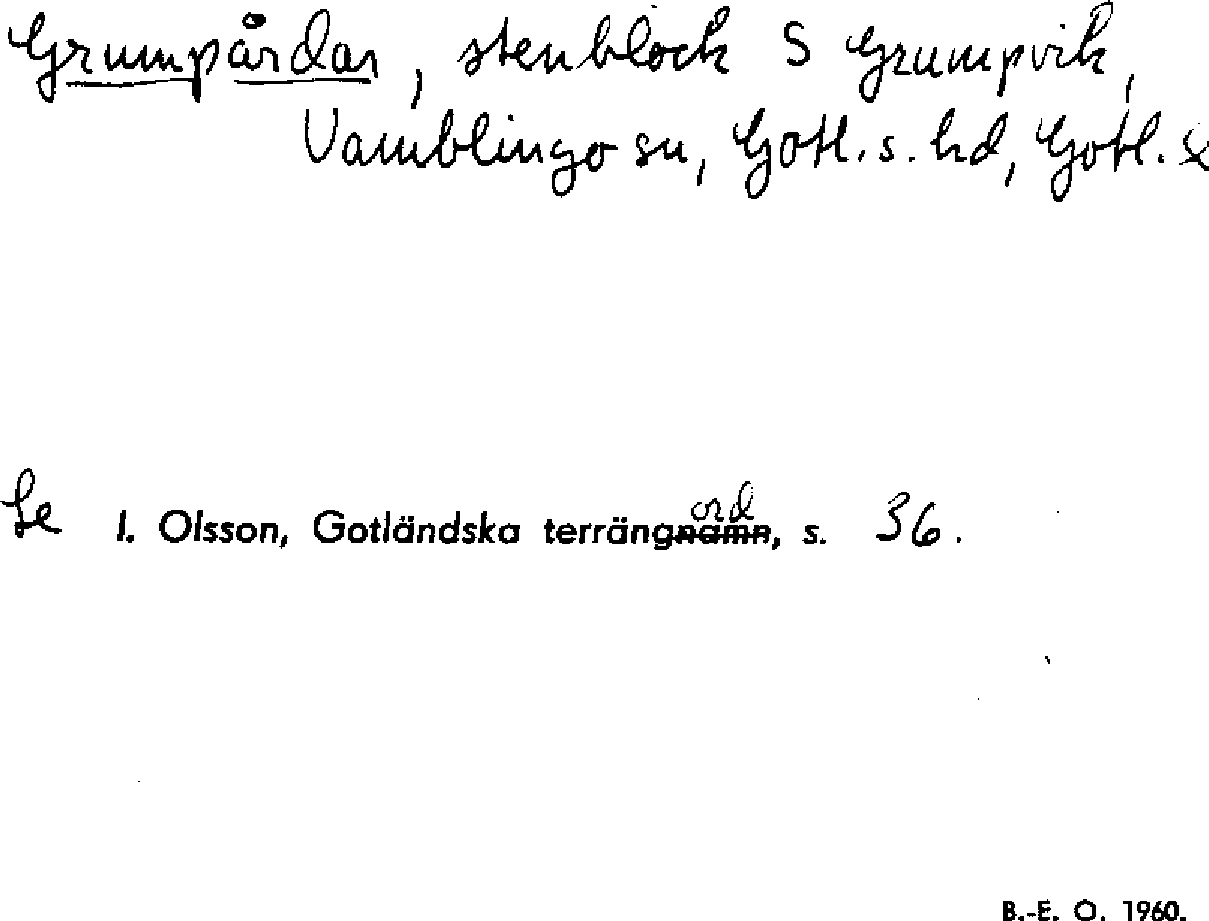 Grumpårdar, stenblock S Grumpvik,
Vamblingo sn, Gotl. s. hd, Gotl.
Se I. Olsson, Gotländska terrängnamn, s. 36.
ord
B.-E. O. 1960.